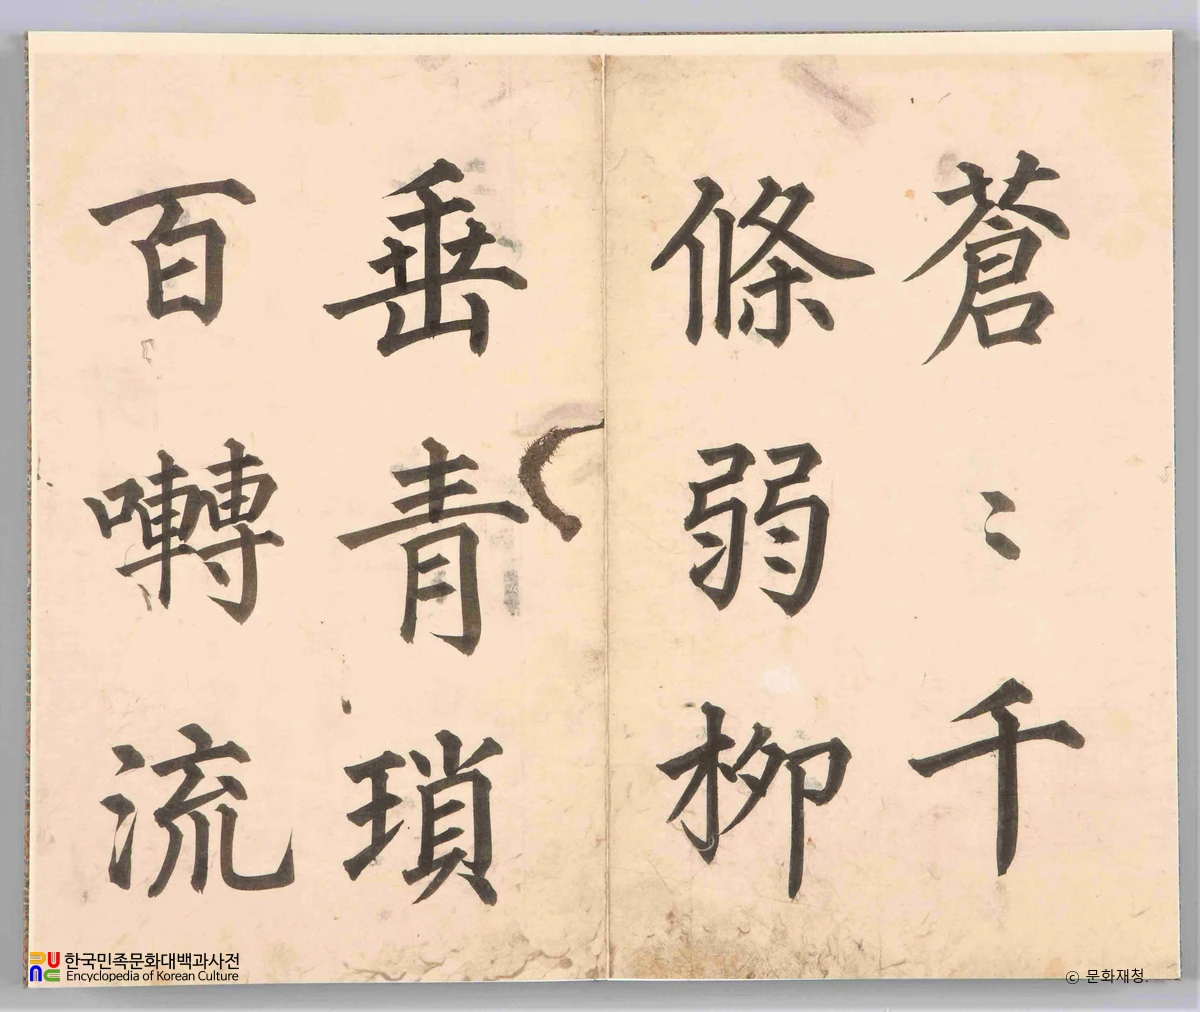 蒼〻千
條弱柳
垂青瑣
百囀流
한국민족문화대백과사전
Encyclopedia of Korean Culture
ⓒ 문화재청.